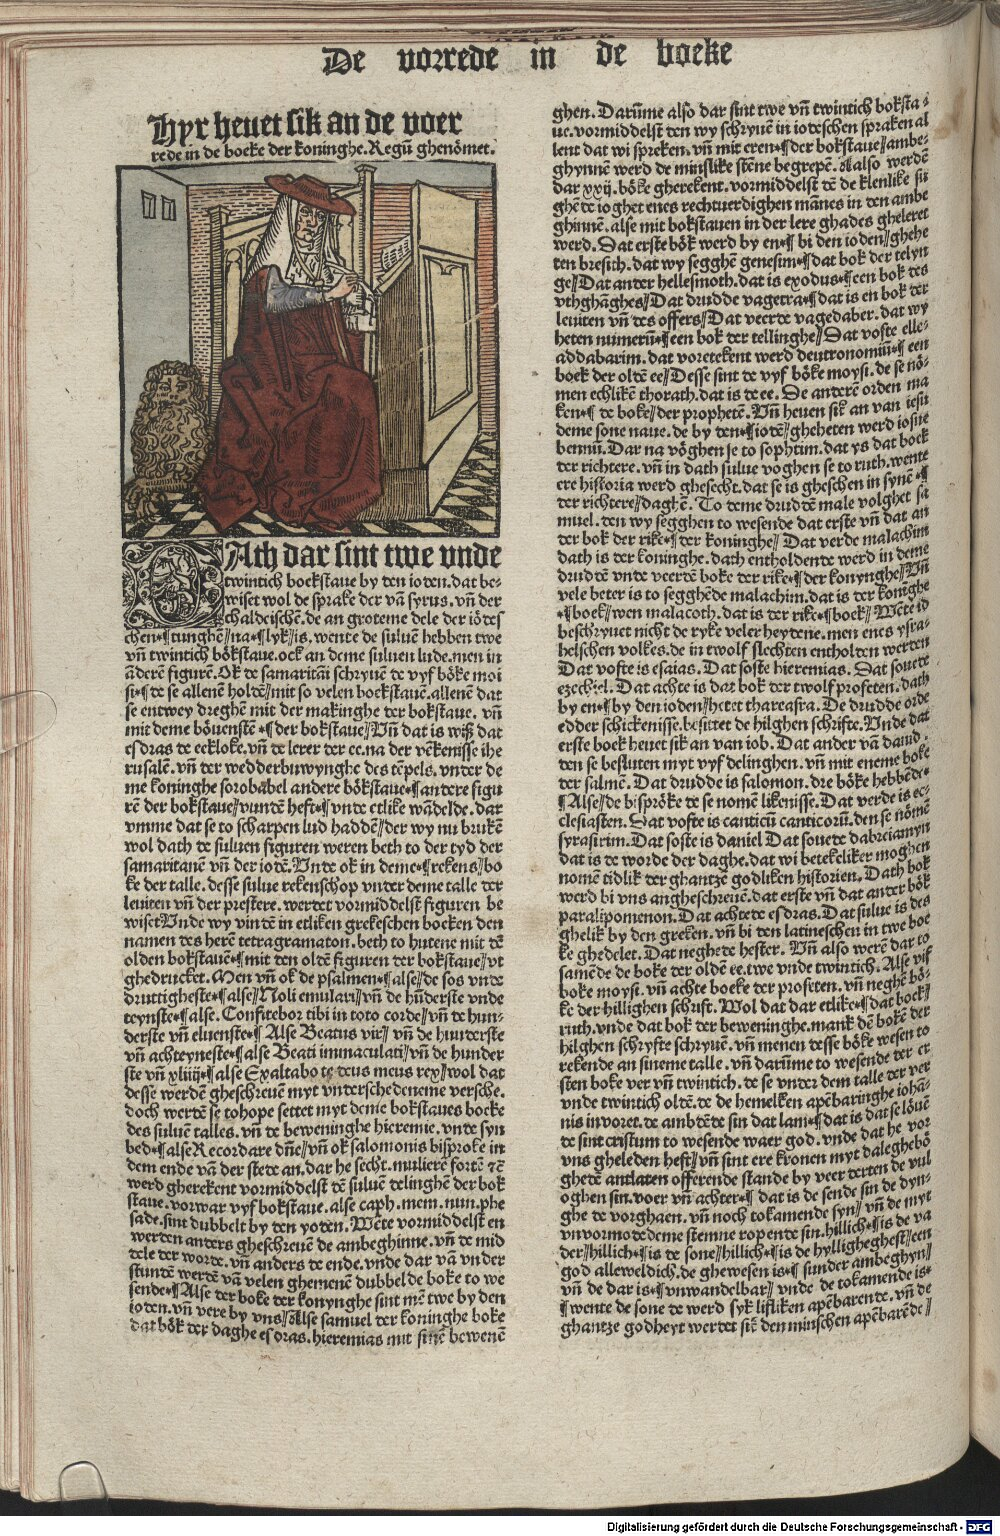 De vorrede in de boeke
Hyr hevet sik an de voer
rede in de boeke der koninghe. Regū ghenömet.
Ach dar sint twe vnde
twintich boekstaue by den ioden. dat be-
wiset wol de sprake der vā syrus. vñ der
chaldeischē. de an groteme dele der iödes
chen tunghē na lyk is. wente de suluē hebben twe
vñ twintich bökstaue. ock an deme suluen lude. men in
āderē figurē. Ok de samaritāi schryuē de vyf böke moi
si de se allenē holdē mit so velen boekstauē. allenē dat
se entwey dreghē mit der makinghe der bokstaue. vñ
mit deme böuenstē der bokstaue Vñ dat is wiß dat
esdras de eekloke. vñ de lerer der ee. na der vēkenisse ihe
rusalē. vñ der wedderbuwynghe des tēpels. vnder de
me koninghe sorobabel andere bökstaue andere figu
rē der bokstaue vundē heft vnde etlike wādelde. dar
vmme dat se to scharpen lud haddē der wy nu brukē
wol dath de suluen figuren weren beth to der tyd der
samaritanē vñ der iodē. Vnde ok in deme rekens bo
ke der talle. desse sulue rekenschop vnder deme talle der
leuiten vñ der prestere. werdet vormiddelst figuren be
wiset Vnde wy vindē in etliken grekeschen bocken den
namen des herē tetragramaton. beth to hutene mit dē
olden bokstauē mit den oldē figuren der bokstaue vt
ghedrucket. Men vñ ok de psalmen alse de sos vnde
druttigheste alse Noli emulari vñ de hūderste vnde
teynste alse. Confitebor tibi in toto corde vñ de hun-
derste vñ eluenste Alse Beatus vir vñ de hunderste
vñ achteyneste alse Beati inmaculati vñ de hunder
ste vñ xliiij alse Exaltabo te deus meus rex wol dat
desse werdē gheschreuē myt vnderschedeneme versche.
doch werdē se tohope settet myt deme bokstaues bocke
des suluē talles. vñ de beweninghe hieremie. vnde syn
bed alse Recordare dñe vñ ok salomonis bisproke in
dem ende vā der stede an. dar he secht. mulierē fortē zē
werd gherekent vormiddelst dē suluē telinghē der bok
staue. vorwar vyf bokstaue. alse caph. mem. nun. phe
sade. sint dubbelt by den yoden. Wēte vormiddelst en
werden anders gheschreuē de ambeghinne. vñ de mid
dele der worde. vñ anders de ende. vnde dar vā vnder
stundē werdē vā velen ghemenē dubbelde boke to we
sende Alse der boke der konynghe sint mē twe by den
ioden. vñ vere by vns Alse samuel der koninghe boke
dat bök der daghe esdras. hieremias mit sinē bewenē
ghen. Darūme also dar sint twe vñ twintich boksta-
ue. vormiddelst den wy schryuē in iodeschen spraken al
lent dat wi spreken. vñ mit eren der bokstaue ambe-
ghynnē werd de minslike stēne begrepē. Also werdē
dar xxij. böke gherekent. vormiddelst dē de klenlike sü
ghēde ioghet enes rechtuerdighen mānes in den ambe
ghinnē. alse mit bokstauen in der lere ghades gheleret
werd. Dat erste bök werd by en bi den ioden ghehe
ten bresith. dat wy segghē genesim dat bok der telyn
ge Dat ander hellesmoth. dat is exodus een bok des
vthghāghes Dat drudde vagetra dat is en bok der
leuiten vñ des offers Dat veerde vagedaber. dat wy
heten numerū een bok der tellinghe Dat vofte elle-
addabarim. dat voretekent werd deutronomiū een
boek der oldē ee Desse sint de vyf böke moysi. de se nö-
men echlikē thorath. dat is de ee. De anderē orden ma
ken de boke der prophetē. Vñ heuen sik an van iesu
deme sone naue. de by den iodē gheheten werd iosue
bennū. Dar na vöghen se to sophtim. dat ys dat boek
der richtere. vñ in dath sulue voghen se to ruth. wente
ere historia werd ghesecht. dat se is gheschen in synē
der richtere daghē. To deme druddē male volghet sa
muel. den wy segghen to wesende dat erste vñ dat an
der bok der rike der koninghe Dat verde malachim
dath is der koninghe. dath entholdende werd in deme
druddē vnde veerdē boke der rike der konynghe Vñ
vele beter is to segghēde malachim. dat is der konīghe
boek wen malacoth. dat is der rike boek Wēte id
beschryuet nicht de ryke veler heydene. men enes ysra-
helschen volkes. de in twolf slechten entholten werden
Dat vofte is esaias. Dat soste hieremias. Dat souede
ezechiel. Dat achte is dat bok der twolf profeten. dath
by en by den ioden hetet thareasra. De drudde orde
edder schickenisse. besittet de hilghen schrifte. Vnde dat
erste boek heuet sik an van iob. Dat ander vā dauid.
den se besluten myt vyf delinghen. vñ mit eneme boke
der salmē. Dat drudde is salomon. dre böke hebbēde
Alse de bispröke de se nomē likenisse. Dat verde is ec-
clesiasten. Dat vofte is canticū canticorū. den se nömē
syrasirim. Dat soste is daniel Dat souede dabreiamyn
dat is de worde der daghe. dat wi betekeliker moghen
nomē tidlik der ghantzē godliken historien. Dath bok
werd bi vns angheschreuē. dat erste vñ dat ander bök
paralipomenon. Dat achtede esdras. Dat sulue is des
ghelik by den greken. vñ bi den latineschen in twe boe
ke ghedelet. Dat neghede hester. Vñ also werē dar to
samēde de boke der oldē ee. twe vnde twintich. Alse vif
boke moysi. vñ achte boeke der profeten. vñ neghē bö-
ke der hillighen schrift. Wol dat dar etlike dat boek
ruth. vnde dat bok der beweninghe. mank dē bokē der
hilghen schryfte schryuē. vñ menen desse böke wesen to
rekende an sineme talle. vñ darūme to wesende der er
sten boke ver vñ twintich. de se vnder dem talle der ver
vnde twintich oldē. de de hemelken apēbaringhe iohā-
nis invoret. de ambēde sin dat lam dat is dat se löuē
de sint cristum to wesende waer god. vnde dat he vor
vns gheleden heft vñ sint ere kronen myt daleghebö
ghedē antlaten offerende stande by veer derten de vul
oghen sin. voer vñ achter dat is de sende sin de dyn-
ghe de vorghaen. vñ noch tokamende syn vñ de myt
vnvormodeme stemne ropende sin. hillich is de va
der hillich is de sone hillich is de hyllighegheyst een
god alleweldich. de ghewesen is sunder ambeghyn
vñ de dar is vnwandelbar vnde de tokamende is
wente de sone de werd syk lifliken apēbarende. vñ de
ghantze godheyt werdet sik den minschen apēbarēde
Digitalisierung gefördert durch die Deutsche Forschungsgemeinschaft - DFG